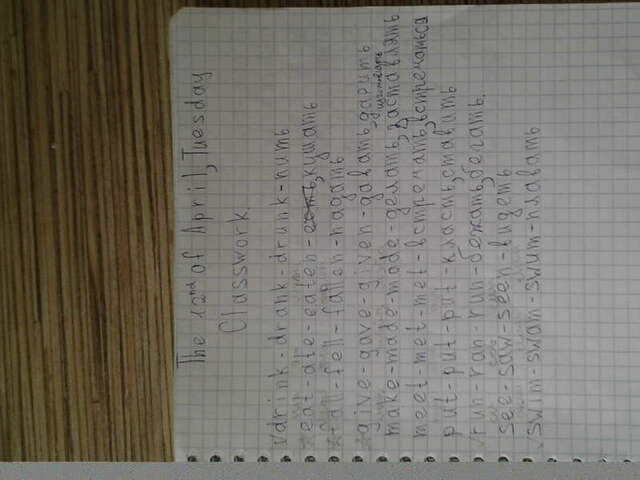 The 12nd of April, Tuesday
Classwork.
drink-drank-drunk-пить
eat-ate-eaten-есть, кушать
fall-fell-fallen-падать
give-gave-given-давать, дарить
make-made-made-делать, заставлять
meet-met-met-встречать, встречаться
put-put-put-класть, ставить
run-ran-run-бежать, бегать.
see-saw-seen-видеть
swim-swam-swum-плавать